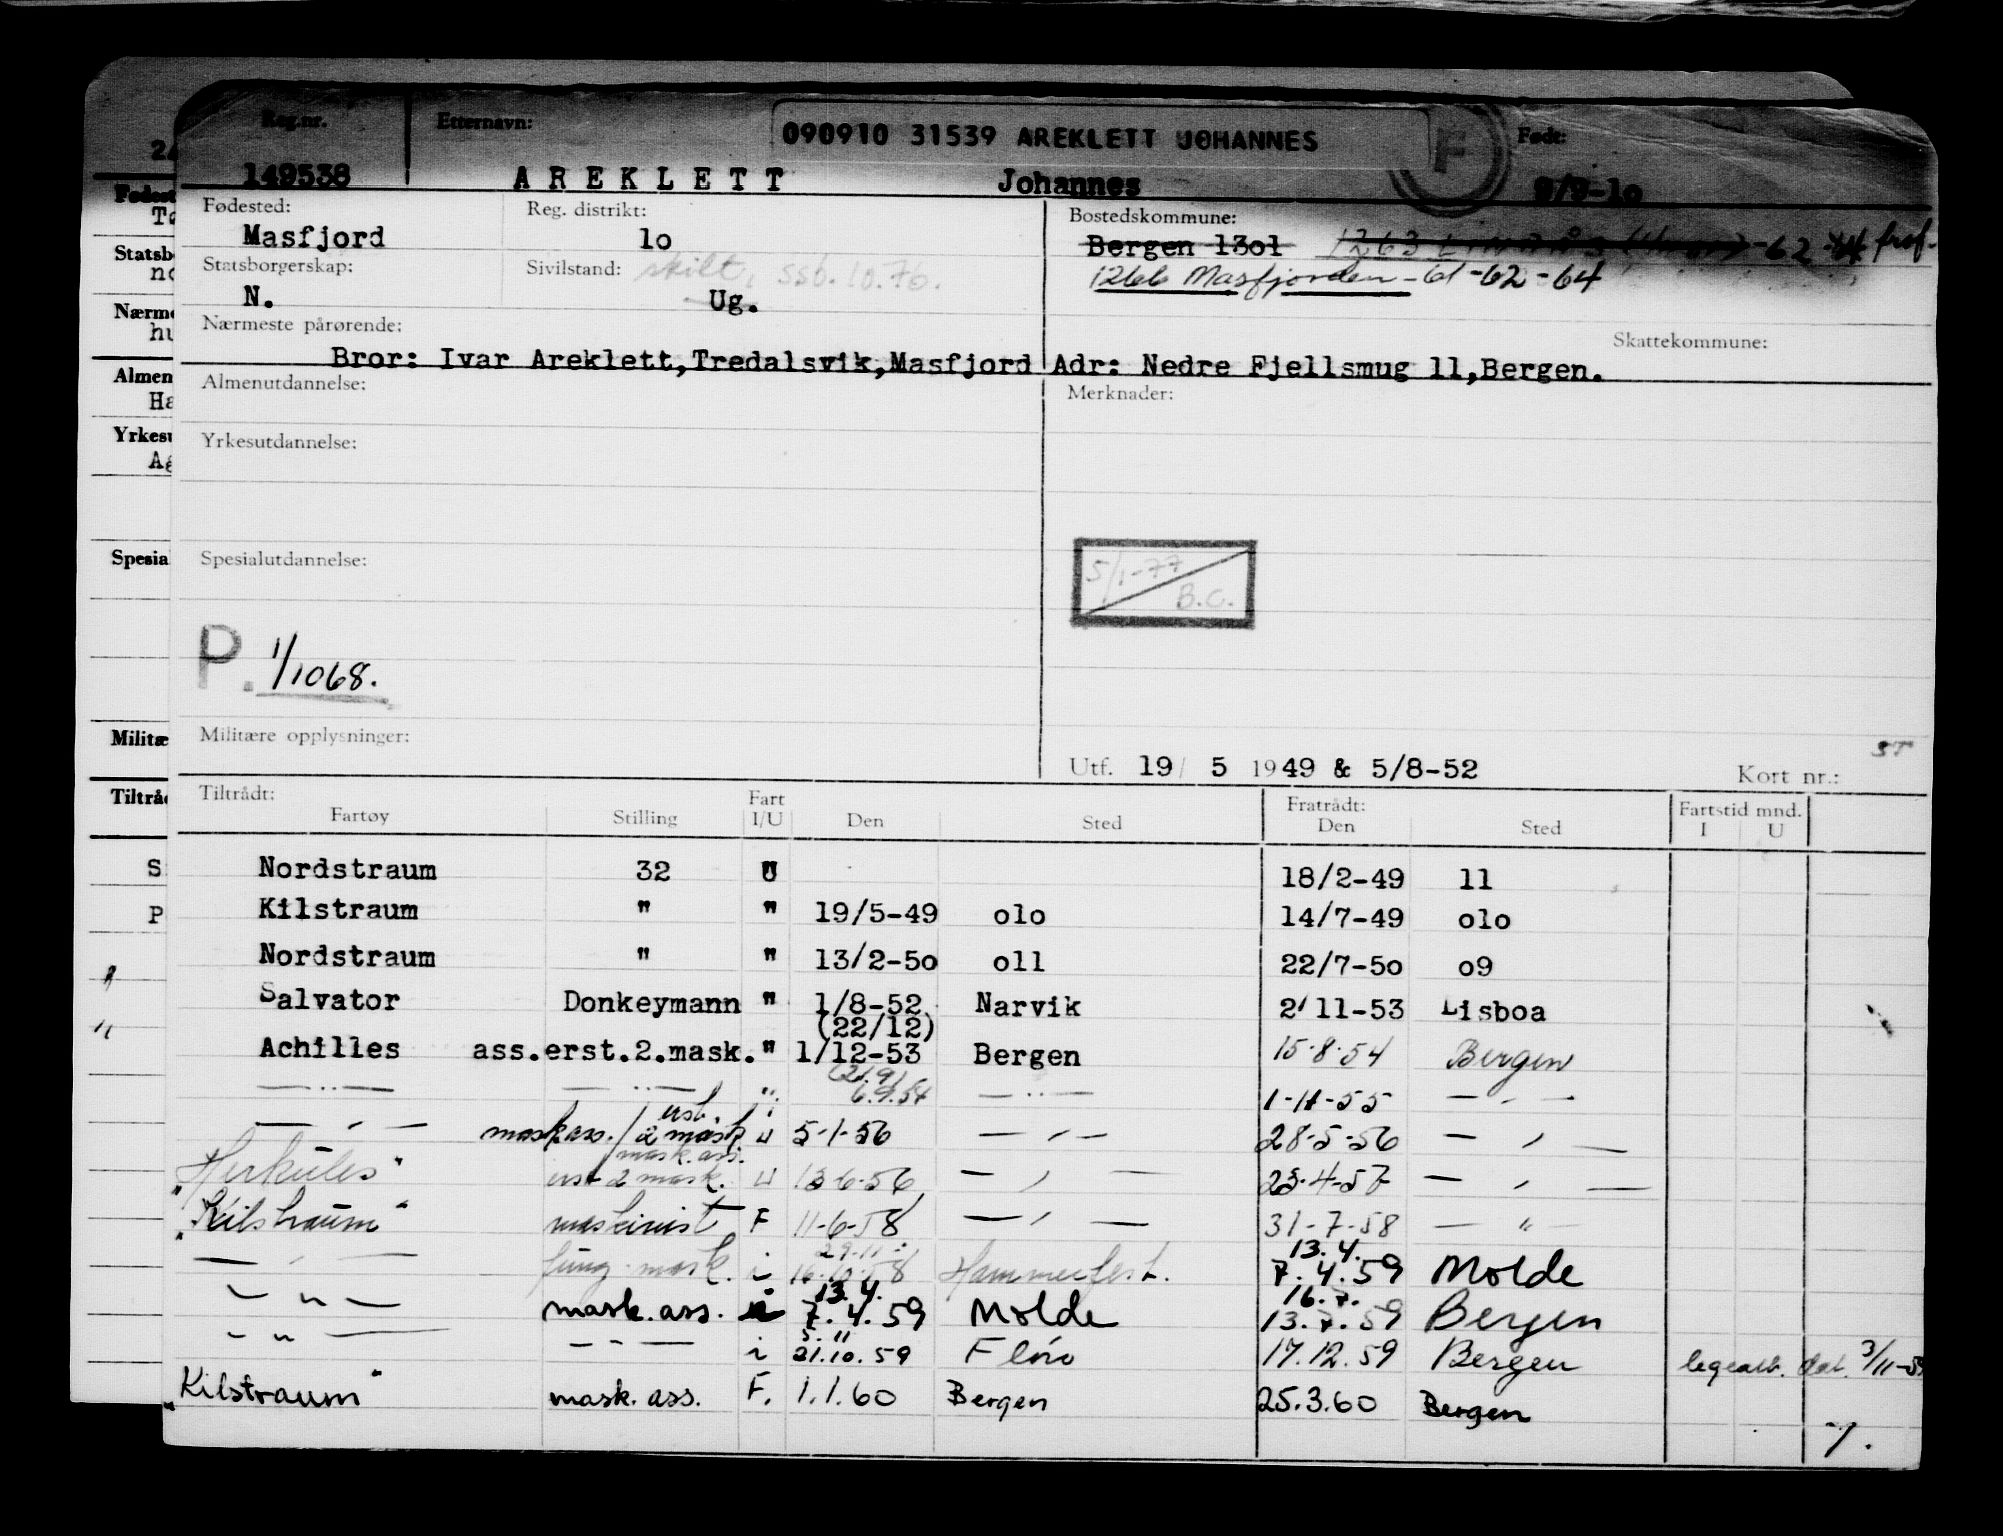 Reg.nr. Etternavn: 090910 31539 AREKLETT JOHANNES F Født:
149538 AREKLETT Johannes 9/9-1o
Fødested: Reg. distrikt: Bostedskommune:
Masfjord 1o Bergen 13o1 1263 -62 -64 fraf.
Statsborgerskap: Sivilstand: skilt, ssb. 10.76. 1266 Masfjorden -61-62-64
N. Ug.
Nærmeste pårørende: Skattekommune:
Bror: Ivar Areklett,Tredalsvik,Masfjord Adr: Nedre Fjellsmug 11,Bergen.
Almenutdannelse: Merknader:
Yrkesutdannelse:
Spesialutdannelse: 5/1-77
B.C.
P. 1/1068.
Militære opplysninger: ST
Utf. 19/ 5 1949 & 5/8-52 Kort nr.:
Tiltrådt: Fart Fratrådt: Fartstid mnd.
Fartøy Stilling I/U Den Sted Den Sted I U
Nordstraum 32 U 18/2-49 11
Kilstraum " " 19/5-49 o1o 14/7-49 o1o
Nordstraum " " 13/2-5o o11 22/7-5o o9
Salvator Donkeymann " 1/8-52 Narvik 2/11-53 Lisboa
(22/12)
Achilles ass.erst.2.mask." 1/12-53 Bergen 15.8.54 Bergen
(21.9)
— " — — " — " 6.9.54 — " — 1-11-55 — " —
— " — maskass./erst. 2 mask U 5-1-56 — " — 28-5-56 — " —
mask. ass.
"Herkules" erst 2 mask. U 13-6-56 — " — 23-4-57 — " —
"Kilstraum" maskinist F 11-6-58 — " — 31-7-58 — " —
29.11 13.4.
— " — fung. mask. i 16.10.58 Hammerfest. 7.4.59 Molde
13.4. 16.7.
— " — mask. ass. i 7.4.59 Molde 13.7.59 Bergen
5.11
— " — — " — i 21.10.59 Florø 17.12.59 Bergen legeatt. dat. 3/11-59
"Kilstraum" mask. ass. F. 1.1.60 Bergen 25.3.60 Bergen
Fødest
Statsb
Nærme
hu
Almen
Ha
Yrkesu
Ag
Spesial
Militæ
Tiltråd
S
P